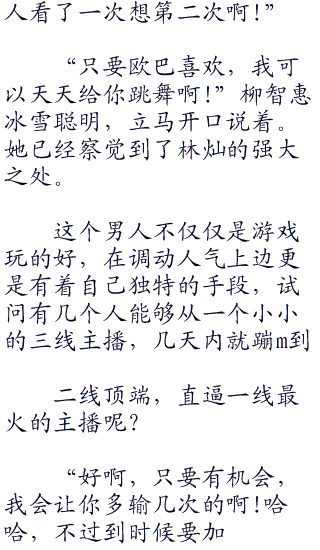 人看了一次想第二次啊!”
“只要欧巴喜欢，我可
以天天给你跳舞啊!”柳智惠
冰雪聪明，立马开口说着。
她已经察觉到了林灿的强大
之处。
这个男人不仅仅是游戏
玩的好，在调动人气上边更
是有着自己独特的手段，试
问有几个人能够从一个小小
的三线主播，几天内就蹦m到
二线顶端，直逼一线最
火的主播呢？
“好啊，只要有机会，
我会让你多输几次的啊!哈
哈，不过到时候要加